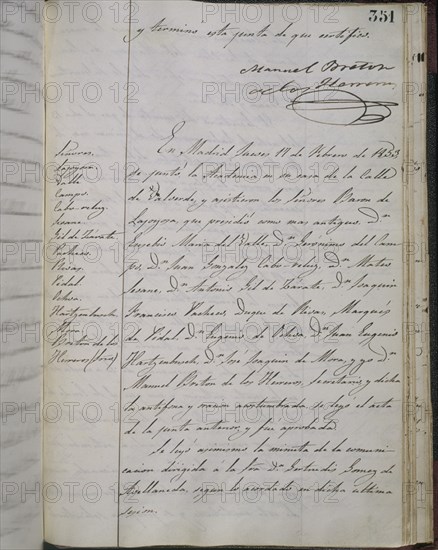 351
y termino esta junta de que certifico.
Manuel Breton
de los Herreros
En Madrid Jueves 17 de Febrero de 1853
se juntó la Academia en su casa de la Calle
de Valverde, y asistieron los Señores Baron de
Lajoyosa, que presidió como mas antiguo, Dn
Eusebio Maria del Valle, Dn Jeronimo del Cam-
po, Dn Juan Gonzalez Cabo-reluz, Dn Mateo
Seoane, Dn Antonio Gil de Zarate, Dn Joaquin
Francisco Pacheco, Duque de Rivas, Marqués
de Pidal, Dn Eugenio de Ochoa, Dn Juan Eugenio
Hartzenbusch, Dn José Joaquin de Mora, y yo Dn
Manuel Breton de los Herreros, Secretario, y dicha
la antifona y oracion acostumbrada se leyó el acta
de la junta anterior, y fue aprobada
Se leyó asimismo la minuta de la comuni-
cacion dirigida a la Sra Da Gertrudis Gomez de
Avellaneda, segun lo acordado en dicha ultima
sesion.
Señores.
Lajoyosa
Valle
Campo.
Cabo-reluz.
Seoane
Gil de Zarate
Pacheco.
Rivas.
Pidal.
Ochoa.
Hartzenbusch
Mora.
Breton de los
Herreros (Srio)
PHOTO12